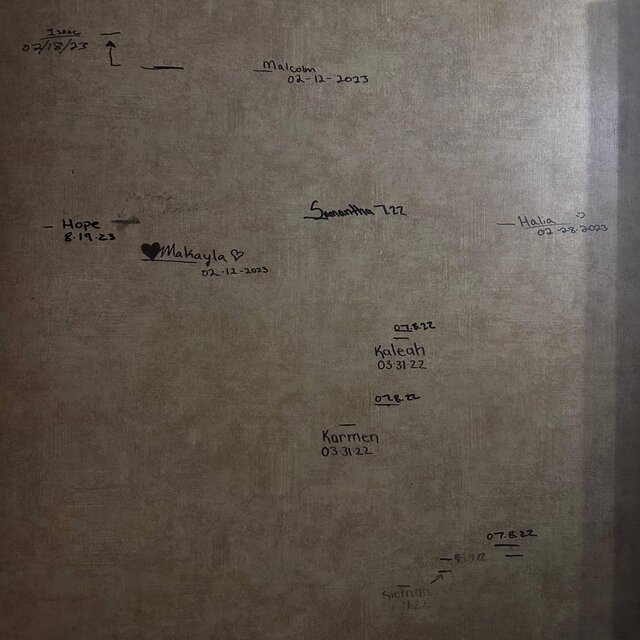 Isaac
02/18/23
Malcolm
02-12-2023
Samantha 7.22
Hope
8.19.23
Halia
02-28-2023
Makayla
02-12-2023
07.8.22
Kaleah
03.31.22
07.8.22
Karmen
03.31.22
07.8.22